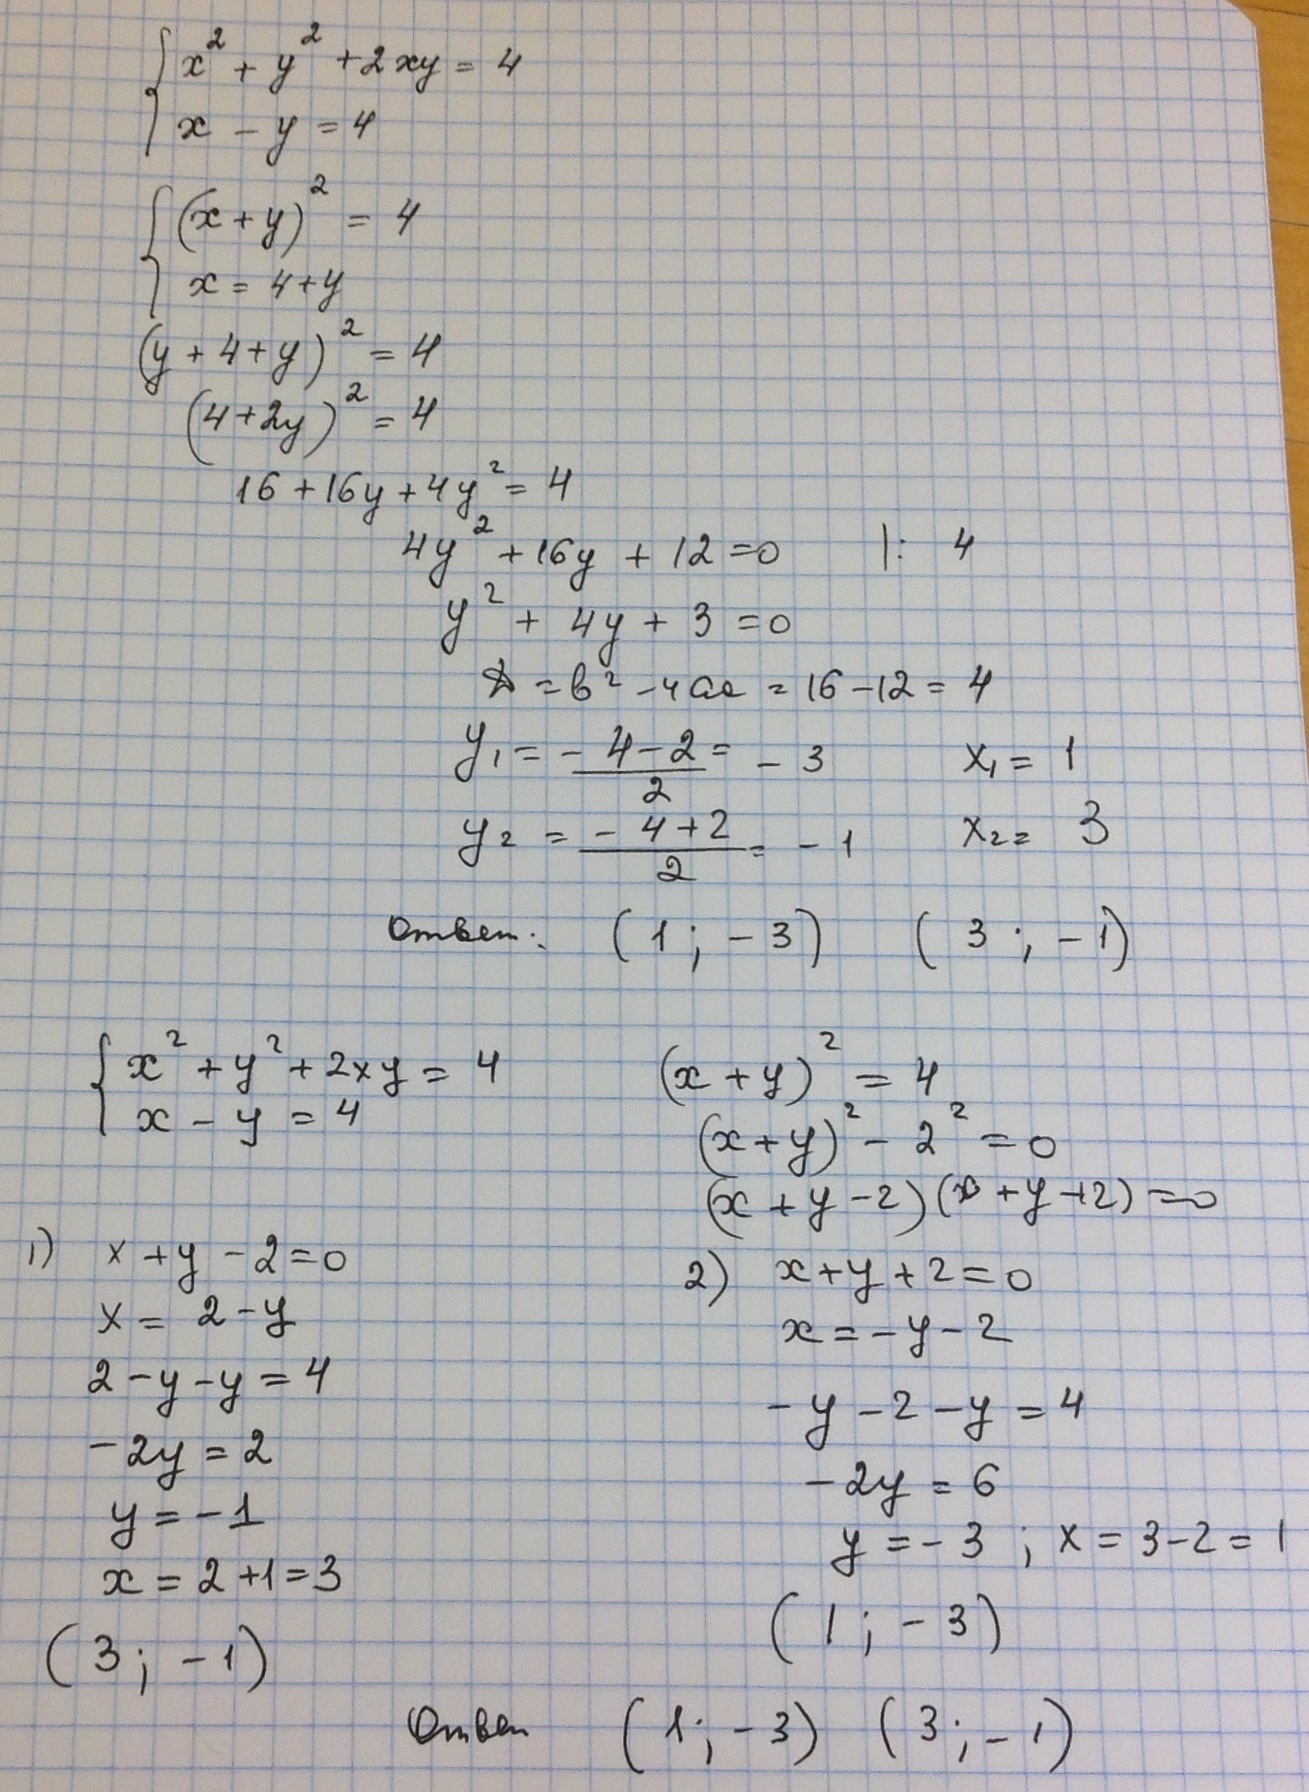 { x² + y² + 2xy = 4
x - y = 4
{ (x + y)² = 4
x = 4 + y
(y + 4 + y)² = 4
(4 + 2y)² = 4
16 + 16y + 4y² = 4
4y² + 16y + 12 = 0 |: 4
y² + 4y + 3 = 0
D = b² - 4ac = 16 - 12 = 4
y₁ = (-4-2)/2 = -3 x₁ = 1
y₂ = (-4+2)/2 = -1 x₂ = 3
Ответ: (1; -3) (3; -1)
{ x² + y² + 2xy = 4
x - y = 4
(x + y)² = 4
(x + y)² - 2² = 0
(x + y - 2)(x + y + 2) = 0
1) x + y - 2 = 0
x = 2 - y
2 - y - y = 4
-2y = 2
y = -1
x = 2 + 1 = 3
(3; -1)
2) x + y + 2 = 0
x = -y - 2
-y - 2 - y = 4
-2y = 6
y = -3 ; x = 3 - 2 = 1
(1; -3)
Ответ (1; -3) (3; -1)